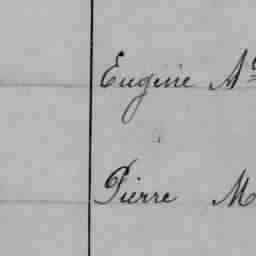 Eugène A
Pierre M